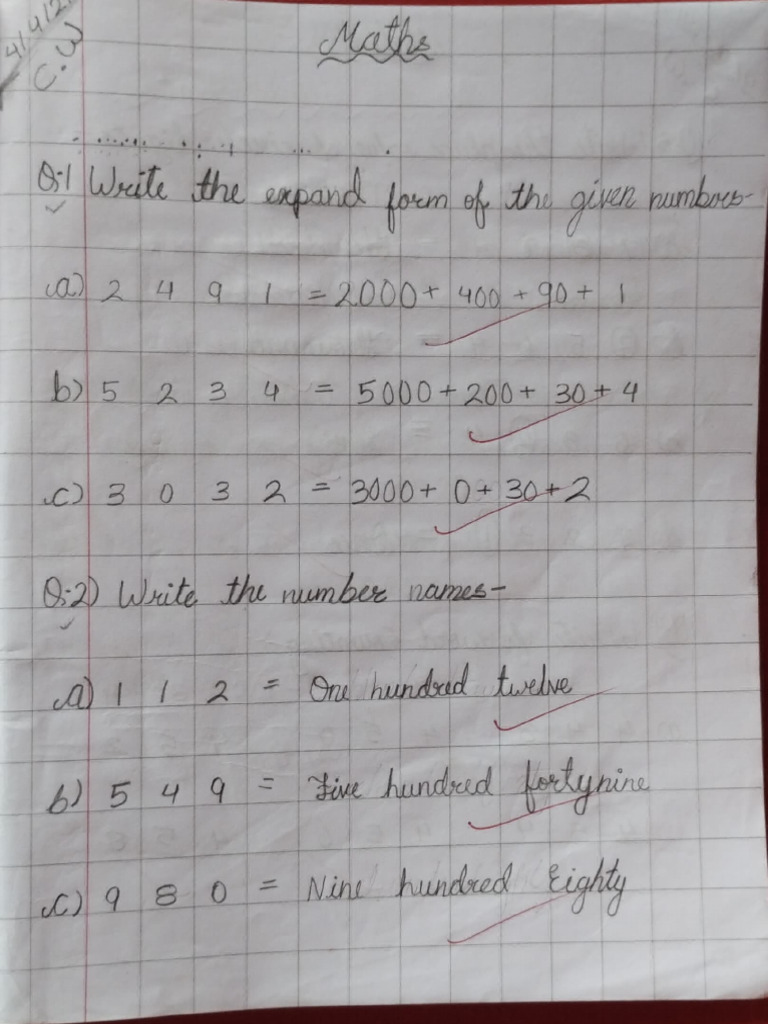 4/4/2
C.W
Maths
Q.1 Write the expand form of the given numbers-
a) 2 4 9 1 = 2000+ 400 + 90 + 1
b) 5 2 3 4 = 5000 + 200 + 30 + 4
c) 3 0 3 2 = 3000 + 0 + 30 + 2
Q.2) Write the number names-
a) 1 1 2 = One hundred twelve
b) 5 4 9 = Five hundred fortynine
c) 9 8 0 = Nine hundred Eighty